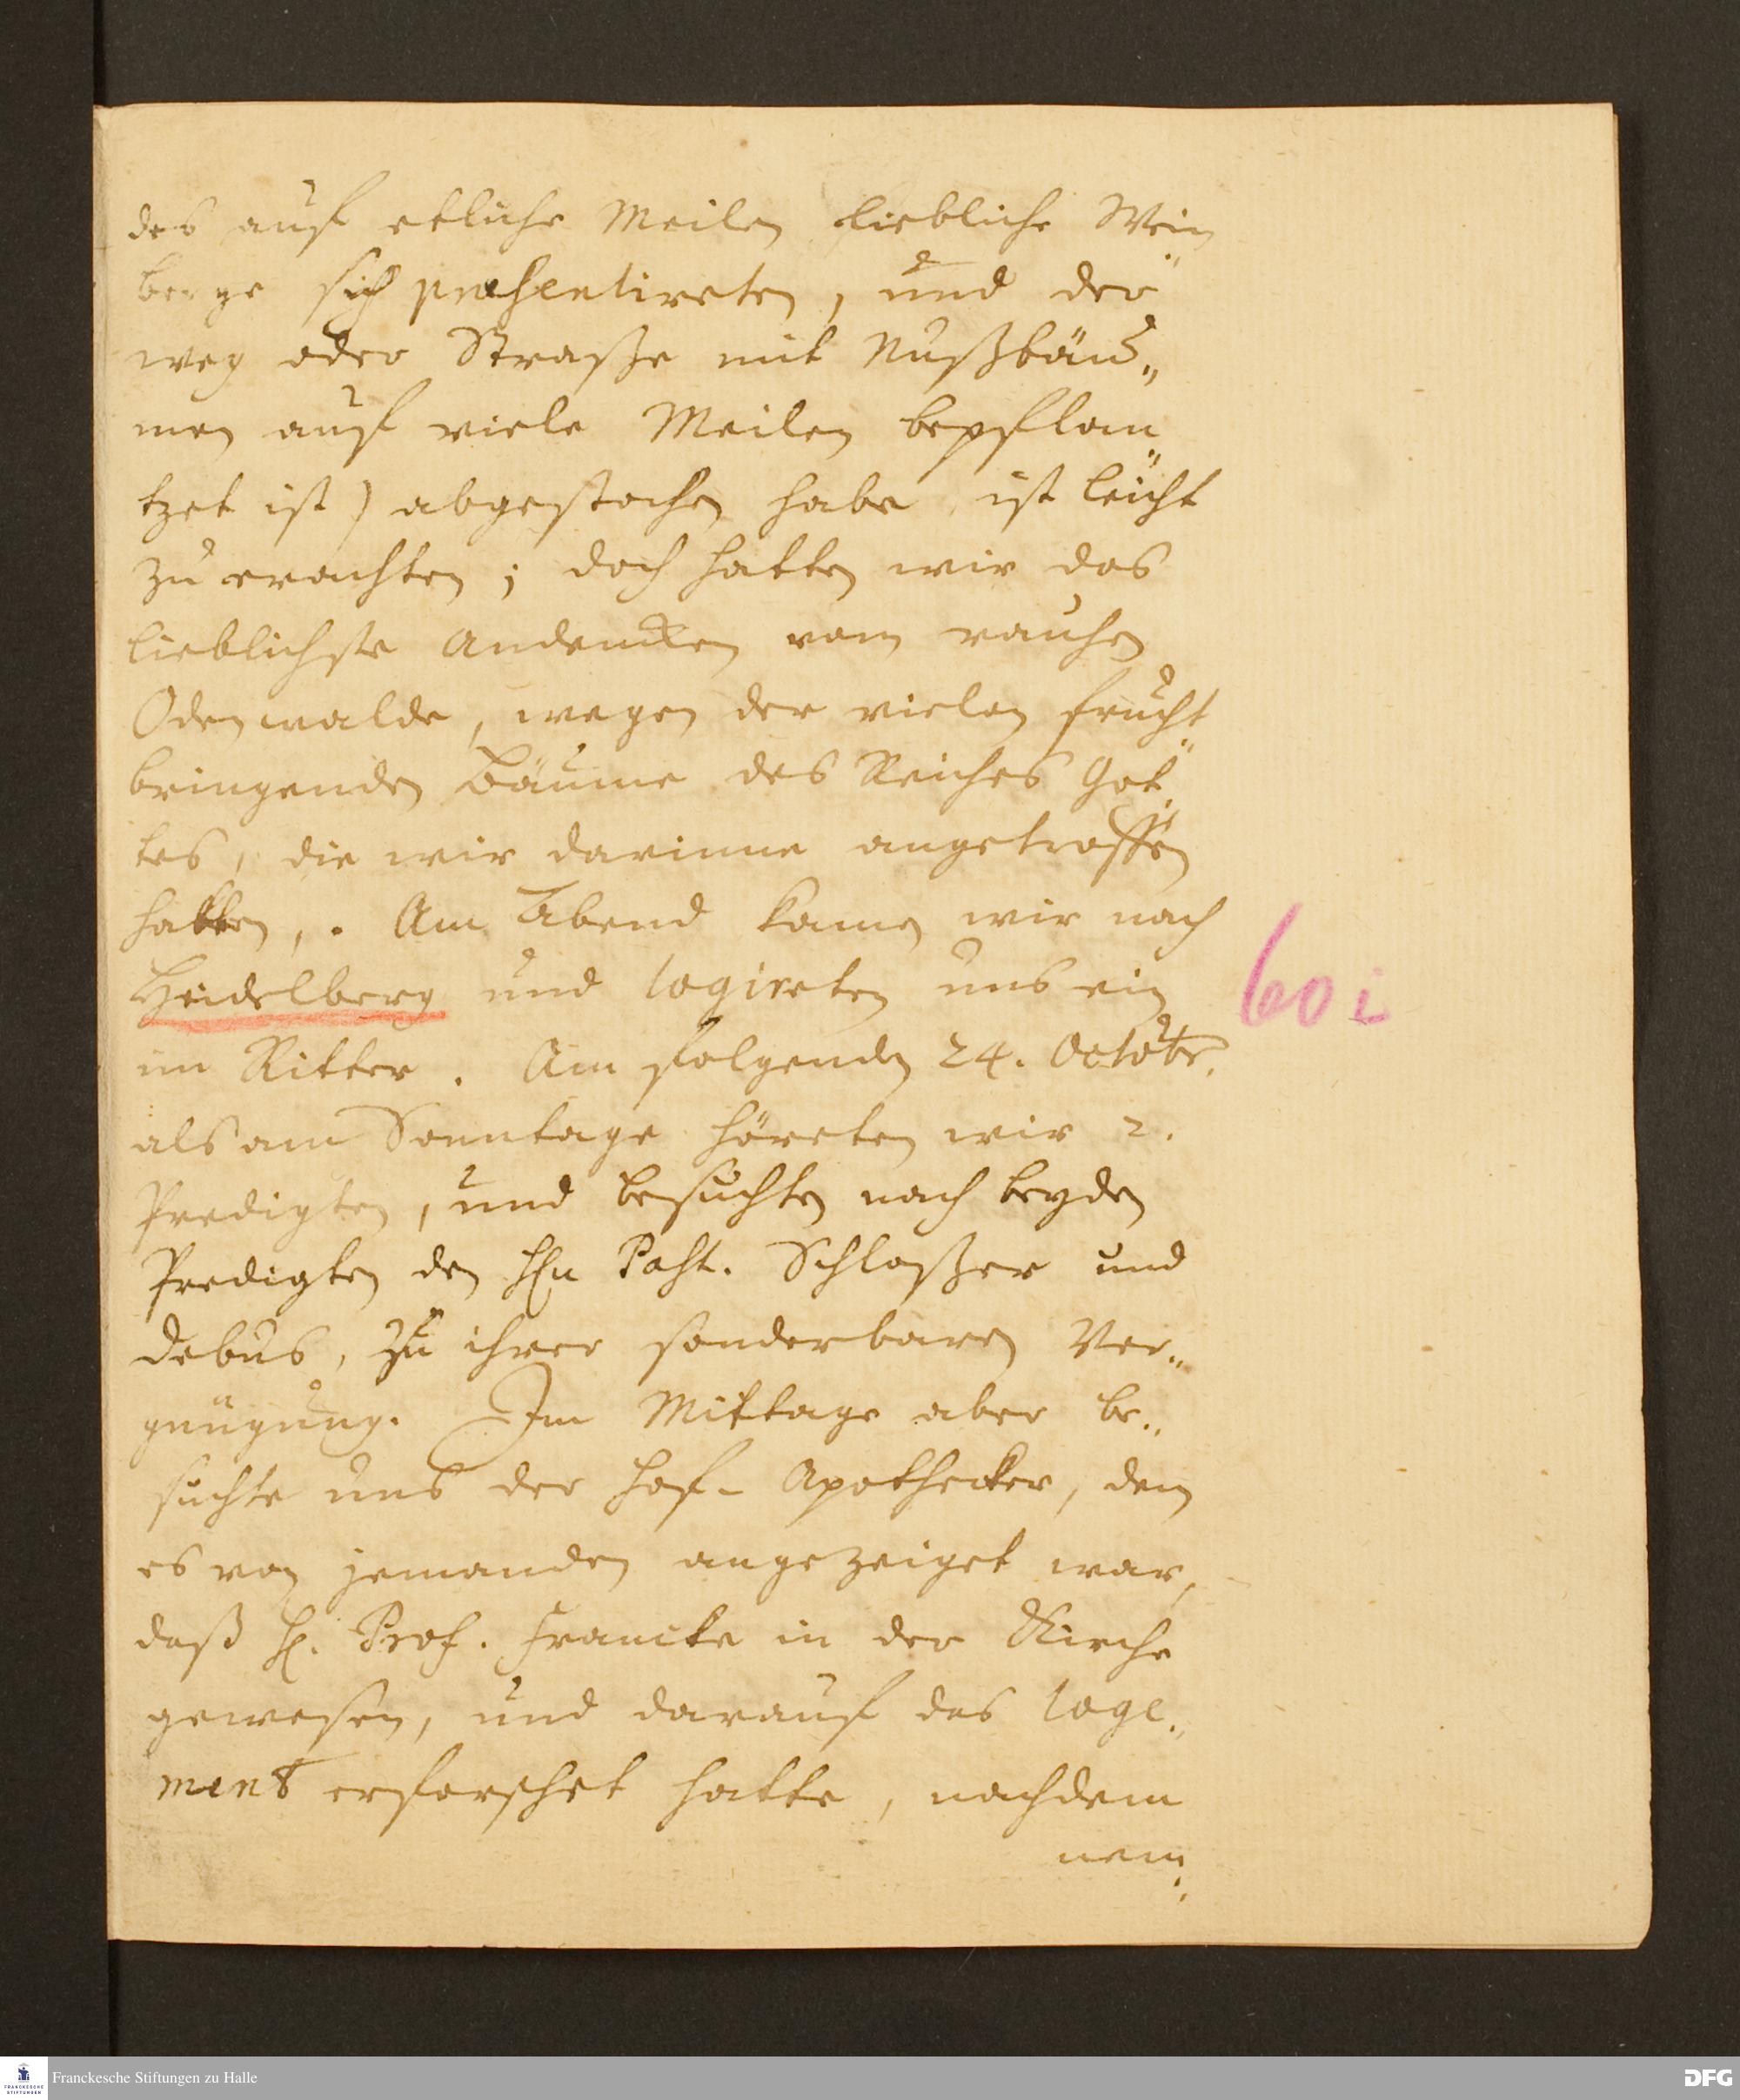 des auf etliche Meilen liebliche Wein„
berge sich præsentireten, und der
weg oder Straße mit Nußbäu„
men auf viele Meilen bepflan„
tzet ist) abgestochen habe, ist leicht
zu erachten; doch hatten wir das
lieblichste Andencken vom rauhen
Odenwalde, wegen der vielen frucht„
bringenden Bäume des Reiches Got„
tes, die wir darinne angetroffen
hatten,. Am Abend kamen wir nach
Heidelberg und logireten uns ein
im Ritter. Am folgenden 24. Octobr.
als am Sonntage höreten wir 2.
Predigten, und besuchten nach beyden
Predigten den Hn Past. Schloßer und
Debus, zu ihrer sonderbaren Ver„
gnügung. Im Mittage aber be„
suchte uns der Hof-Apothecker, dem
es von jemanden angezeiget war,
daß H. Prof. Francke in der Kirche
gewesen, und darauf das loge„
ment erforschet hatte, nachdem
nem„
Franckesche Stiftungen zu Halle
FRANCKESCHE
STIFTUNGEN
DFG